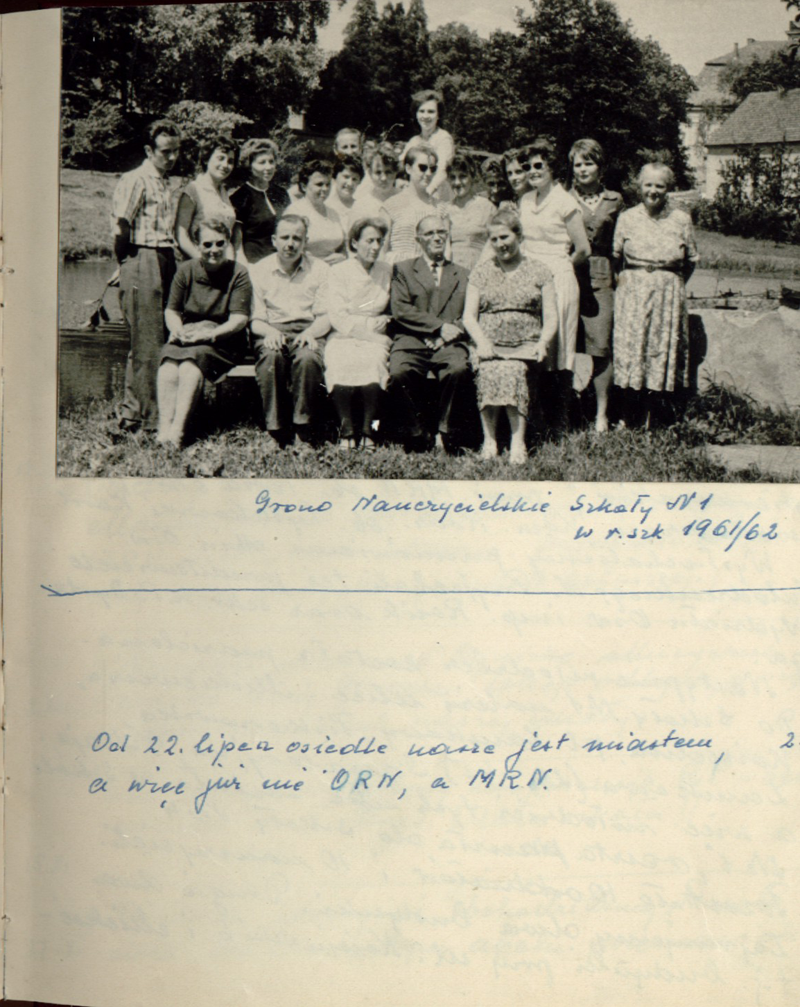 Grono Nauczycielskie Szkoły N 1
w r. szk 1961/62
Od 22. lipca osiedle nasze jest miastem,
a więc już nie ORN, a MRN.
2